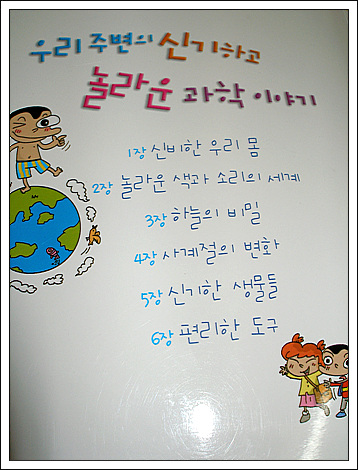 우리 주변의 신기하고
놀라운 과학 이야기
1장 신비한 우리 몸
2장 놀라운 색과 소리의 세계
3장 하늘의 비밀
4장 사계절의 변화
5장 신기한 생물들
6장 편리한 도구